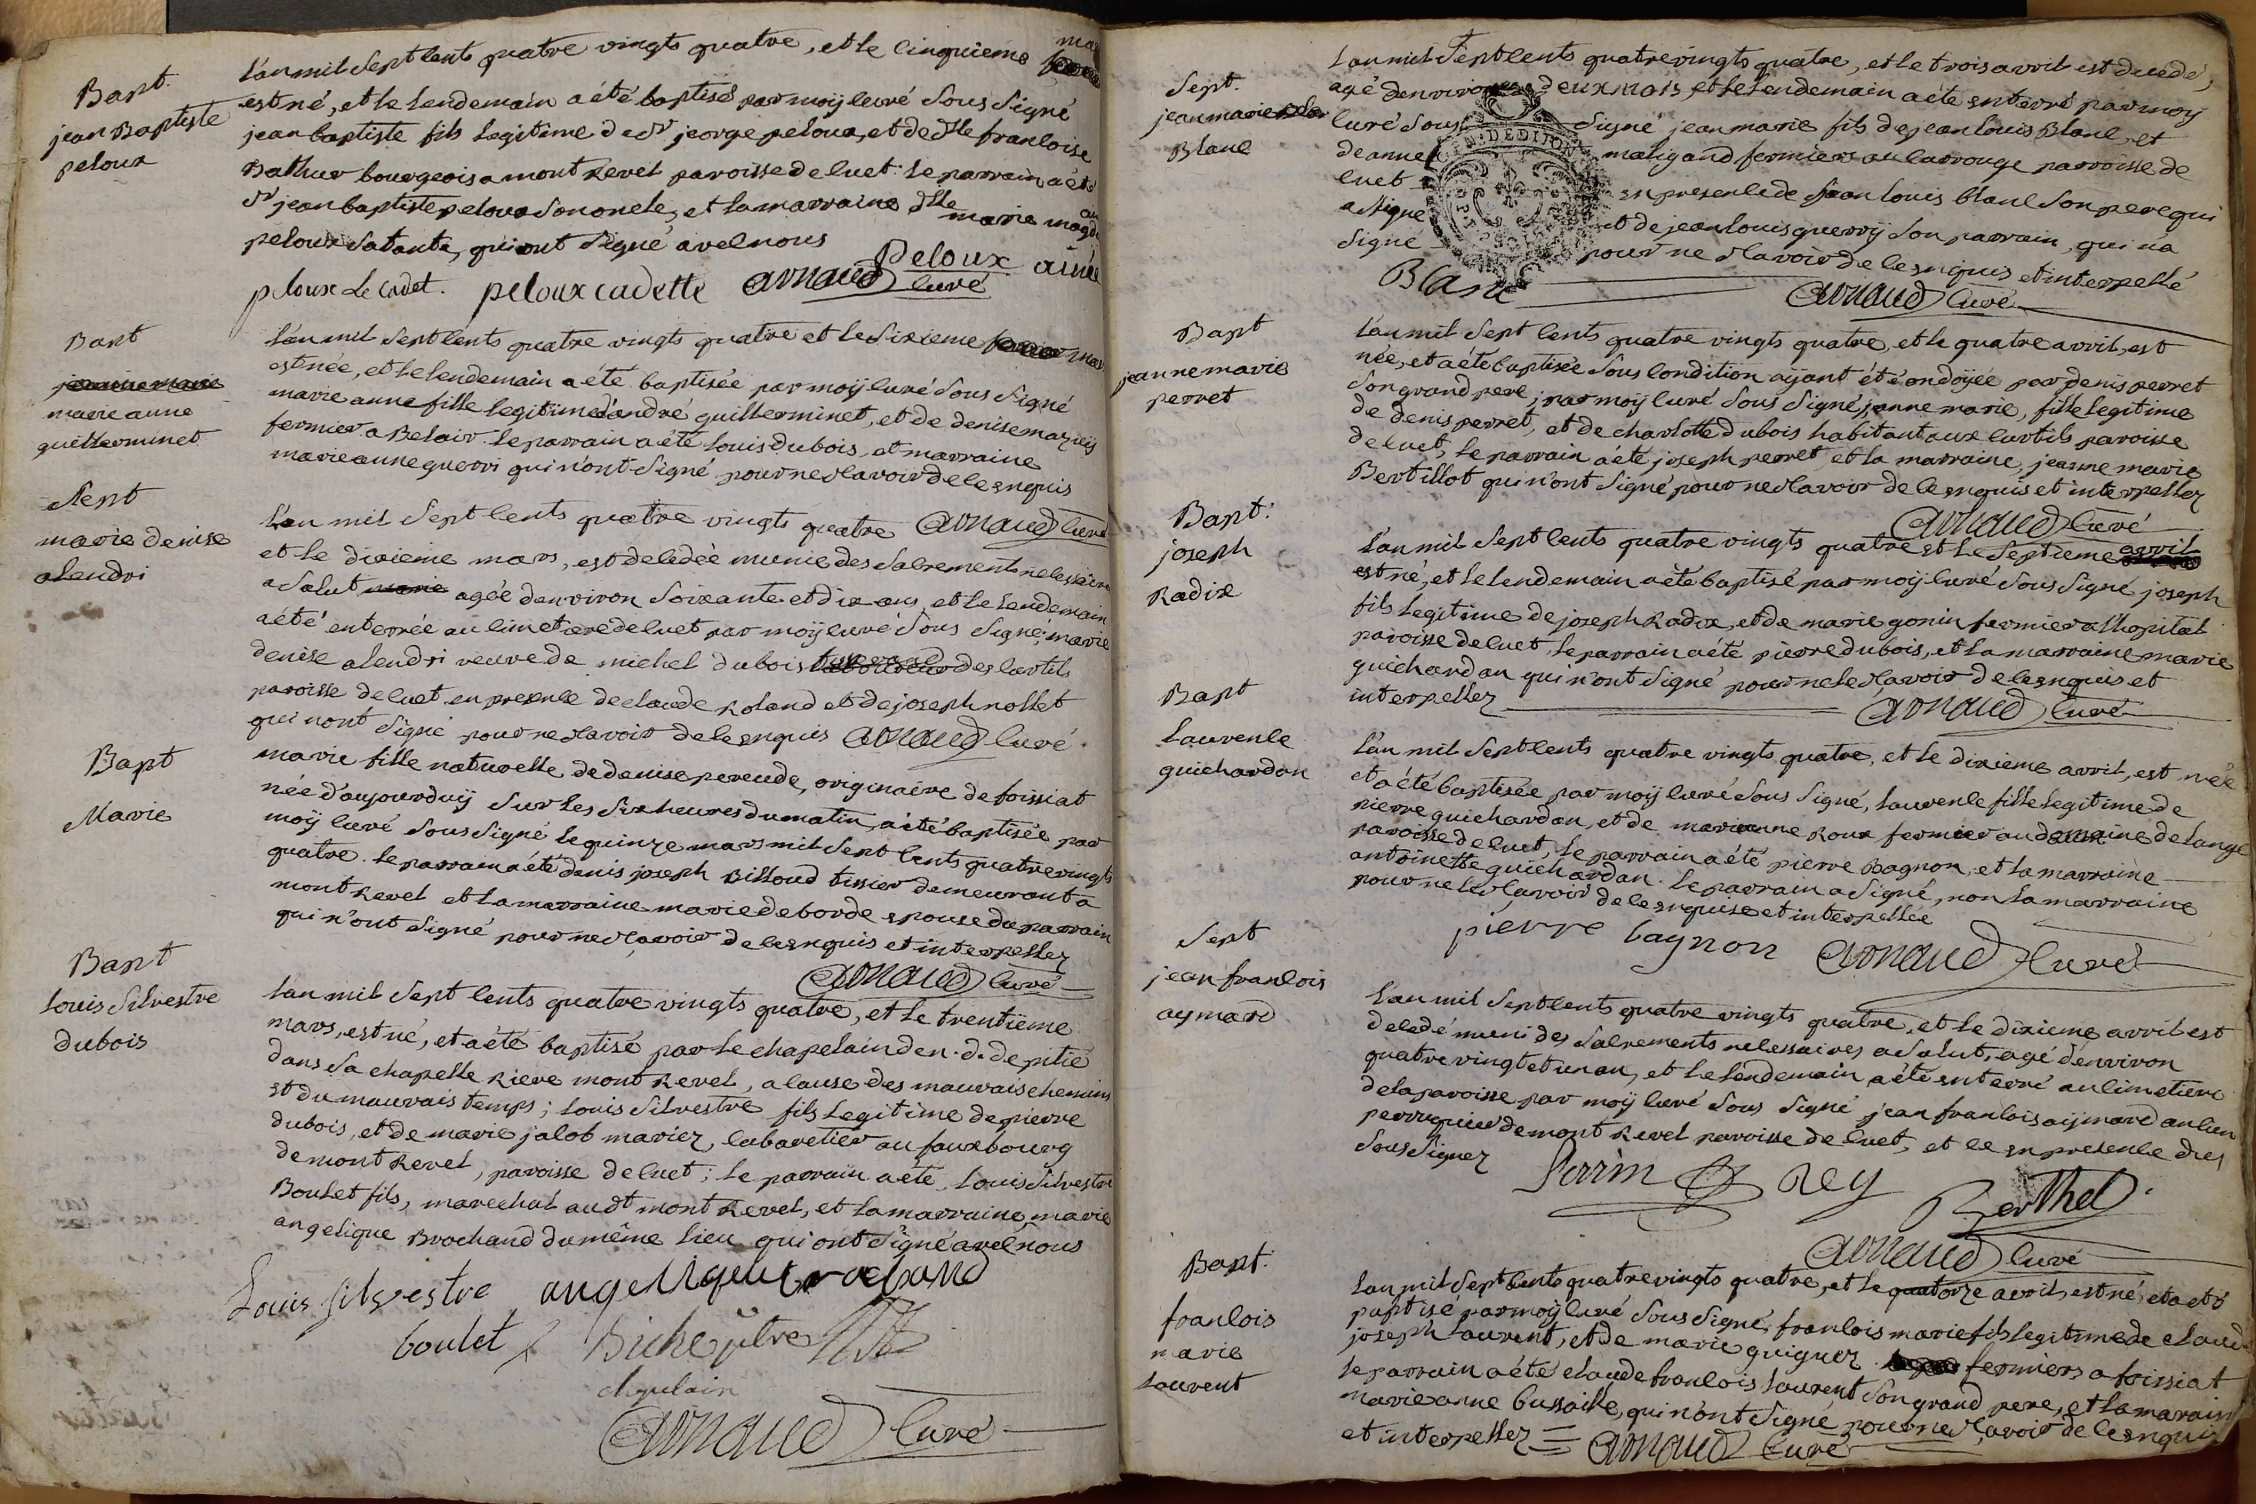 Bapt.
jean Baptiste
peloux
L'an mil sept cents quatre vingts quatre, et le cinquieme mars
est né, et le lendemain a été baptisé par moÿ curé sous signé
jean baptiste fils legitime de Sr jeorge peloux, et de dlle francoise
Bathier bourgeois a mont Revel paroisse de cuet. le parrain a été
Sr jean baptiste peloux son oncle, et la marraine dlle marie magd
peloux sa tante, qui ont signé avec nous
Peloux ainée
peloux Le Cadet. peloux cadette Arnaud curé
Bapt
jeanne marie
marie anne
guillerminet
L'an mil sept cents quatre vingts quatre et le sixieme mars
est née, et le lendemain a été baptisée par moÿ curé sous signé
marie anne fille legitime d'andré guillerminet, et de denise mazuis
fermier a Belair. le parrain a été louis dubois, et marraine
marie anne guerri qui n'ont signé pour ne scavoir de ce enquis
Arnaud curé
Sept
marie denise
alendri
L'an mil sept cents quatre vingts quatre
et le dixieme mars, est decedée munie des sacrements necessaires
a salut agée d'environ soixante et dix ans, et le lendemain
a été enterrée au cimetiere de cuet par moÿ curé sous signé, marie
denise alendri veuve de michel dubois des cartils
paroisse de cuet en presence de claude Roland et de joseph nollet
qui n'ont signé pour ne scavoir de ce enquis Arnaud curé.
Bapt
Marie
marie fille naturelle de denise pereude, originaire de foissiat
née d'aujourduÿ sur les six heures du matin, a été baptisée par
moÿ curé sous signé le quinze mars mil sept cents quatre vingts
quatre. le parrain a été denis joseph Billoud tissier demeurant a
mont Revel et la marraine marie deborde epouse du parrain
qui n'ont signé pour ne scavoir de ce enquis et interpellez
Arnaud curé
Bapt
Louis Silvestre
dubois
L'an mil sept cents quatre vingts quatre, et le trentieme
mars, est né, et a été baptisé par le chapelain de n. d. de pitié
dans sa chapelle Riere mont Revel, a cause des mauvais chemins
et du mauvais temps; louis silvestre fils legitime de pierre
dubois, et de marie jacob mariez, cabaretier au fauxbourg
de mont Revel, paroisse de cuet; le parrain a été, louis silvestre
Boulet fils, marechal audt mont Revel, et la marraine, marie
angelique Brochand du même lieu qui ont signé avec nous
Louis silvestre angellique brochand
boulet Biche ptre
chapelain
Arnaud curé
Sept.
jean marie
Blanc
L'an mil sept cents quatre vingts quatre, et le trois avril est decedé,
agé d'environ deux mois, et le lendemain a été enterré par moÿ
curé sous signé jean marie fils de jean louis Blanc, et
de anne maligand fermiers au carrouge parroisse de
cuet en presence de jean louis blanc son pere qui
a signé et de jean louis guerrÿ son parrain, qui n'a
signé pour ne scavoir de ce enquis et interpellé
Blanc Arnaud curé
GEN. DE DIJON
Bapt
jeanne marie
perret
L'an mil sept cents quatre vingts quatre, et le quatre avril, est
née, et a été baptisée sous condition aÿant été ondoÿée par denis perret
son grand pere, par moÿ curé sous signé, jeanne marie, fille legitime
de denis perret, et de charlotte dubois habitant aux curtils paroisse
de cuet, le parrain a été joseph perret, et la marraine, jeanne marie
Bertillot qui n'ont signé pour ne scavoir de ce enquis et interpellez
Arnaud curé
Bapt.
joseph
Radix
L'an mil sept cents quatre vingts quatre et le septieme avril
est né, et le lendemain a été baptisé par moÿ curé sous signé joseph
fils legitime de joseph Radix, et de marie gonin fermier a l'hopital
paroisse de cuet, le parrain a été pierre dubois, et la marraine marie
guichardan qui n'ont signé pour ne le scavoir de ce enquis et
interpellez Arnaud curé
Bapt
Laurence
guichardan
L'an mil sept cents quatre vingts quatre, et le dixieme avril, est née
et a été baptisée par moÿ curé sous signé, laurence fille legitime de
pierre guichardan, et de marianne Roux fermier au domaine de lange
paroisse de cuet, le parrain a été pierre Bagnon, et la marraine
antoinette guichardan. le parrain a signé, non la marraine
pour ne le scavoir de ce enquise et interpellée
pierre bagnon Arnaud curé
Sept
jean francois
aymard
L'an mil sept cents quatre vingts quatre, et le dixieme avril est
decedé muni des sacrements necessaires a salut, agé d'environ
quatre vingt et un an, et le lendemain a été enterré au cimetiere
de la paroisse par moÿ curé sous signé jean francois aÿmard ancien
perruquier de mont Revel paroisse de cuet, et ce en presence des
sous signez
Perrin Rey
Berthel
Arnaud curé
Bapt.
francois
marie
Laurent
L'an mil sept cents quatre vingts quatre, et le quatorze avril, est né, et a été
baptisé par moÿ curé sous signé, francois marie fils legitime de claude
joseph laurent, et de marie guignez fermiers a foissiat
le parrain a été claude francois laurent son grand pere, et la maraine
marie anne bussaille, qui n'ont signé pour ne scavoir de ce enquis
et interpellez Arnaud curé